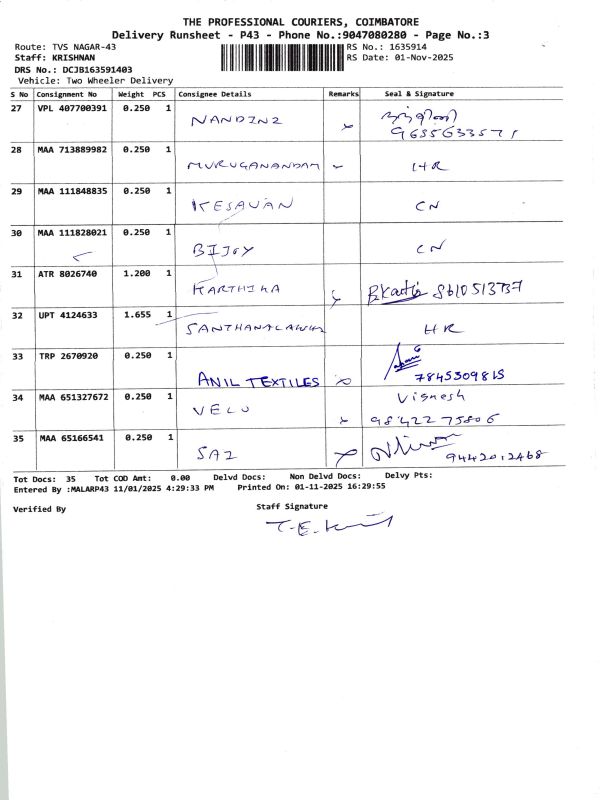 THE PROFESSIONAL COURIERS, COIMBATORE
Delivery Runsheet - P43 - Phone No.:9047080280 - Page No.:3
Route: TVS NAGAR-43 RS No.: 1635914
Staff: KRISHNAN RS Date: 01-Nov-2025
DRS No.: DCJB163591403
Vehicle: Two Wheeler Delivery
S No Consignment No Weight PCS Consignee Details Remarks Seal & Signature
27 VPL 407700391 0.250 1 NANDINI
9655633571
28 MAA 713889982 0.250 1 MURUGANANDAM HR
29 MAA 111848835 0.250 1 KESAVAN CN
30 MAA 111828021 0.250 1 BIJOY CN
31 ATR 8026740 1.200 1 KARTHIKA
32 UPT 4124633 1.655 1 HR
33 TRP 2670920 0.250 1 ANIL TEXTILES 7845309815
34 MAA 651327672 0.250 1 VELU Vignesh
98422 75806
35 MAA 65166541 0.250 1 SAI 9442012468
Tot Docs: 35 Tot COD Amt: 0.00 Delvd Docs: Non Delvd Docs: Delvy Pts:
Entered By :MALARP43 11/01/2025 4:29:33 PM Printed On: 01-11-2025 16:29:55
Verified By Staff Signature